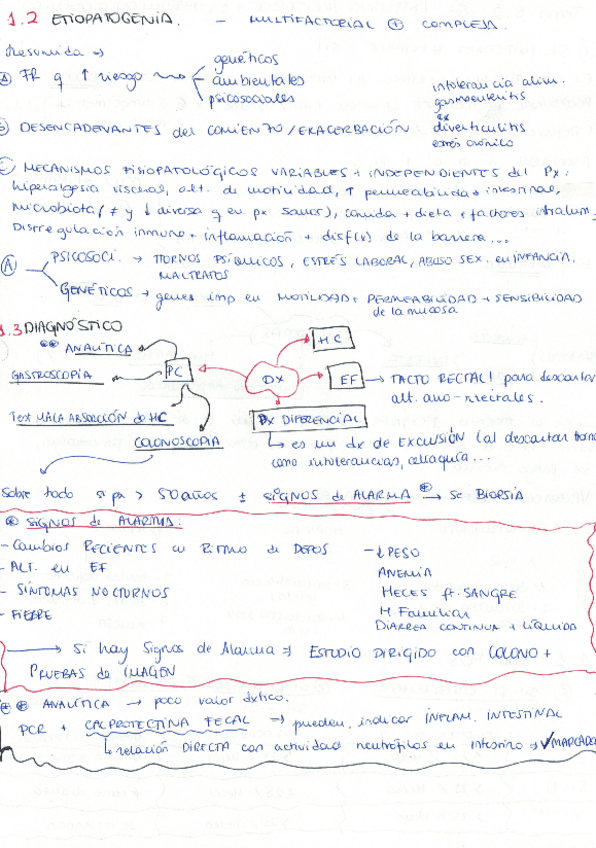 1.2 ETIOPATOGENIA. - MULTIFACTORIAL ⊕ COMPLEJA.
Resumida →
A FR q ↑ riesgo → genéticos
ambientales
psicosociales
intolerancia alim.
gastroenteritis
B DESENCADENANTES del COMIENZO/EXACERBACIÓN ex diverticulitis
estrés crónico
C MECANISMOS FISIOPATOLÓGICOS VARIABLES + INDEPENDIENTES del Px:
hiperalgesia visceral, alt. de motilidad, ↑ permeabilidad intestinal,
microbiota (≠ y ↓ diversa q en px sanos), comida + dieta + factores intralum.
Disrregulación inmune + inflamación + disf(x) de la barrera...
A PSICOSOCI. → TTORNOS PSÍQUICOS, ESTRÉS LABORAL, ABUSO SEX. en INFANCIA.
MALTRATOS
GENÉTICOS → genes imp en MOTILIDAD + PERMEABILIDAD + SENSIBILIDAD
de la mucosa
1.3 DIAGNÓSTICO
** ANALÍTICA
GASTROSCOPIA
PC
DX
HC
EF → TACTO RECTAL! para descartar
alt. ano-rectales.
Test MALA ABSORCIÓN de HC
COLONOSCOPIA
DX DIFERENCIAL
→ es un dx de EXCLUSIÓN (al descartar
como intolerancias, celiaquía...
Sobre todo si px > 50 años ± SIGNOS de ALARMA * → se BIOPSIA
* SIGNOS de ALARMA:
- Cambios RECIENTES en RITMO de DEPOS
- ALT. en EF
- SÍNTOMAS NOCTURNOS
- FIEBRE
- ↓ PESO
ANEMIA
HECES SANGRE
H. Familiar
DIARREA CONTINUA + LÍQUIDA
→ Si hay Signos de Alarma ⇒ ESTUDIO DIRIGIDO con COLONO +
PRUEBAS de IMAGEN
** ANALÍTICA → poco valor dxtico.
PCR + CALPROTECTINA FECAL → pueden indicar INFLAM. INTESTINAL
↳ relación DIRECTA con actividad neutrófilos en intestino →